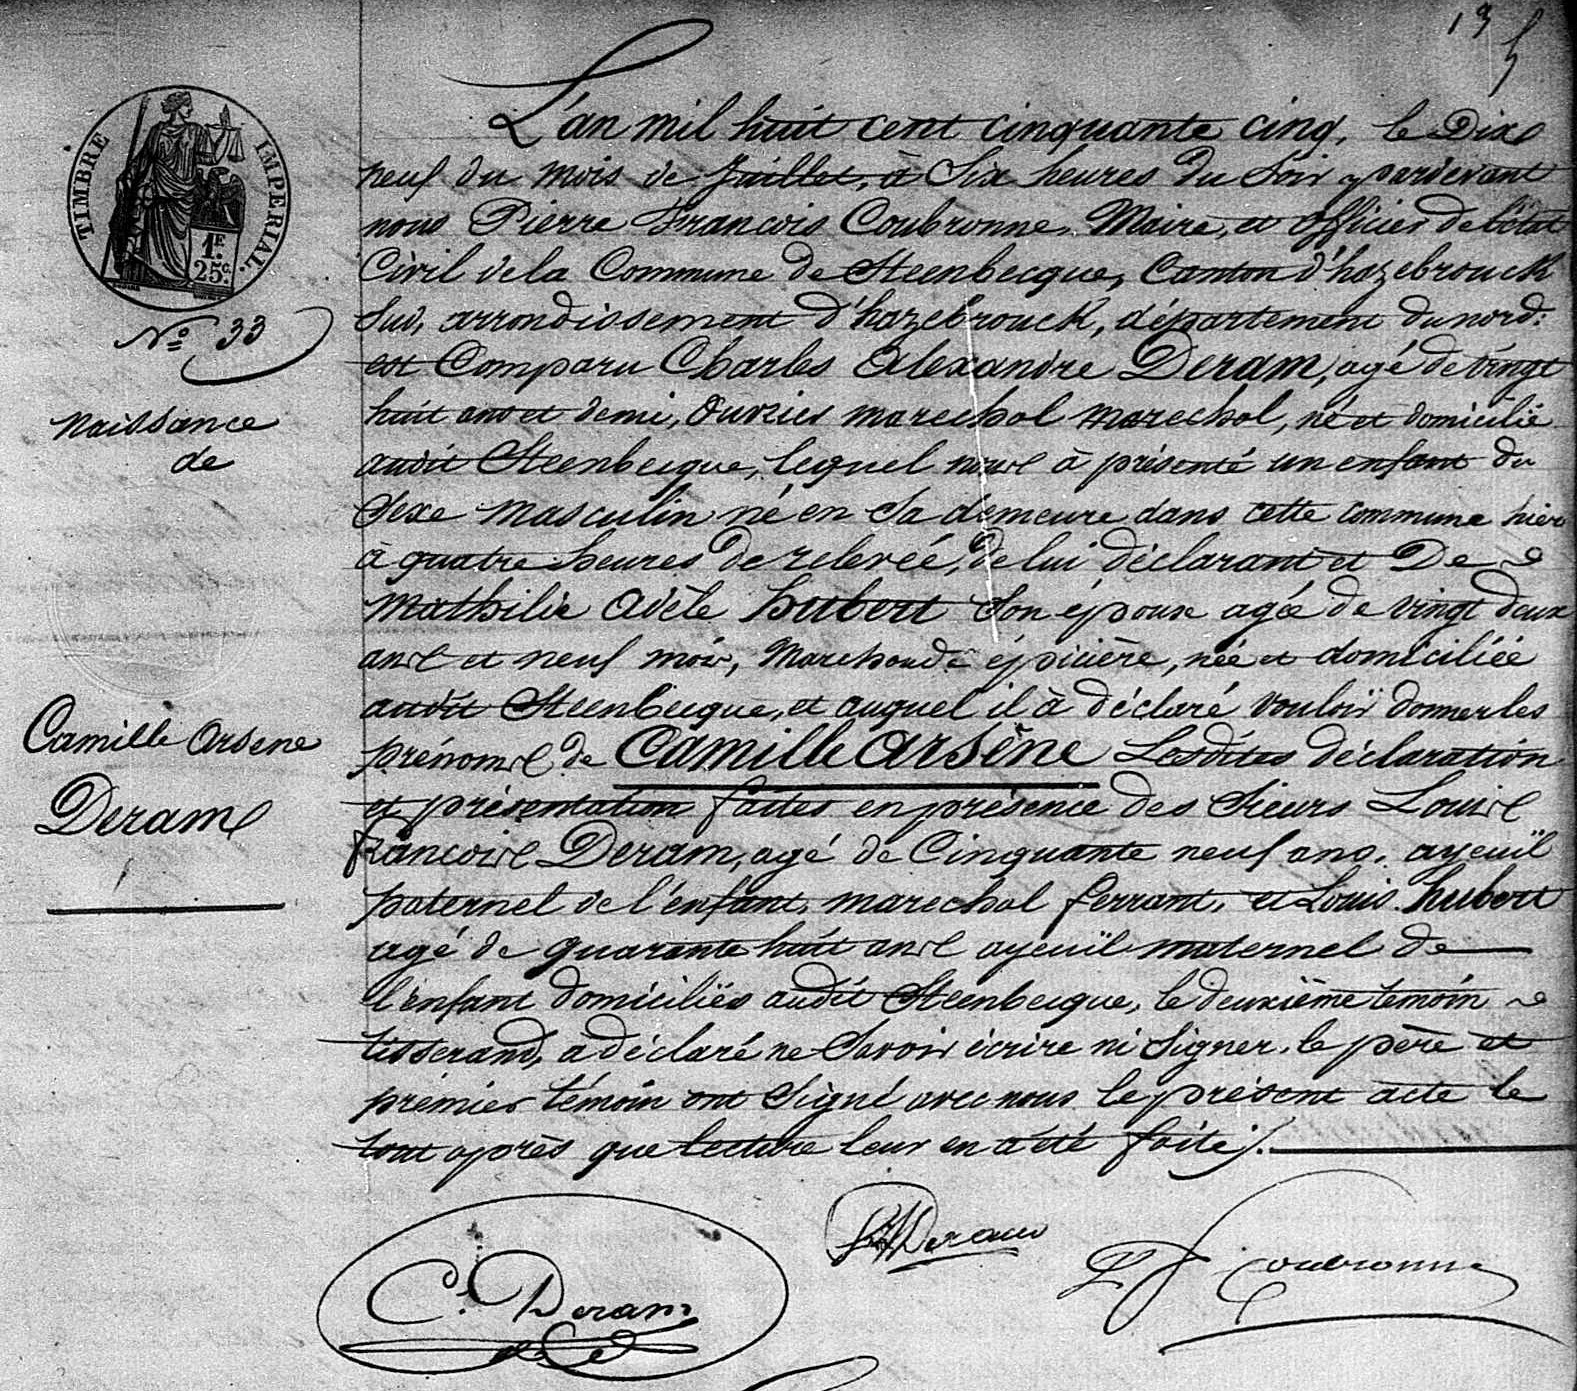 13
TIMBRE IMPERIAL.
1F.
25c.
No. 33
Naissance
de
Camille Arsene
Deram
L'an mil huit cent cinquante cinq, le Dix
neuf du mois de Juillet, à Six heures du Soir pardevant
nous Pierre François Coubronne, Maire, et officier de l'état
Civil de la Commune de Steenbecque, Canton d'hazebrouck
Sud, arrondissement d'hazebrouck, département du nord:
est Comparu Charles Alexandre Deram, agé de vingt
huit ans et demi, Ouvrier marechal marechal, né et domicilié
audit Steenbecque, lequel nous à présenté un enfant du
Sexe masculin né en Sa demeure dans cette commune hier
à quatre heures de relevéé, de lui déclarant et De
Mathilde Adèle hubert Son épouse agéé de vingt deux
ans et neuf mois, Marchande épicière, néé et domiciliéé
audit Steenbecque, et auquel il à déclaré vouloir donner les
prénoms de Camille Arsène Lesdites déclaration
et présentation faites en présence des Sieurs Louis
françois Deram, agé de Cinquante neuf ans, ayeuïl
paternel de l'enfant, marechal ferrant, et Louis hubert
agé de quarante huit ans ayeuïl maternel de
l'enfant domiciliés audit Steenbecque, le deuxième temoin
tisserand, à déclaré ne Savoir écrire ni Signer, le père et
prémier témoin ont Signé avec nous le présent acte le
tout après que lecture leur en a été faite ./.
C. Deram
Deram
P F Coubronne